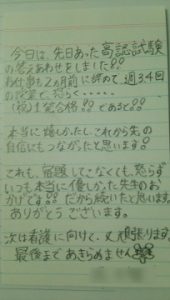 今日は、先日あった高認試験
の答えあわせをしました!!
お仕事も2ヵ月前に辞めて週3.4回
の授業で
(祝)1発合格!! であると!!
本当に嬉しかったし、これから先の
自信にもつながったと思います。
これも、宿題してこなくても、怒らず
いつも本当に優しかった先生のお
かげです!! だから続いたと思います。
ありがとうございます。
次は看護に向けて、又頑張ります。
最後まであきらめません